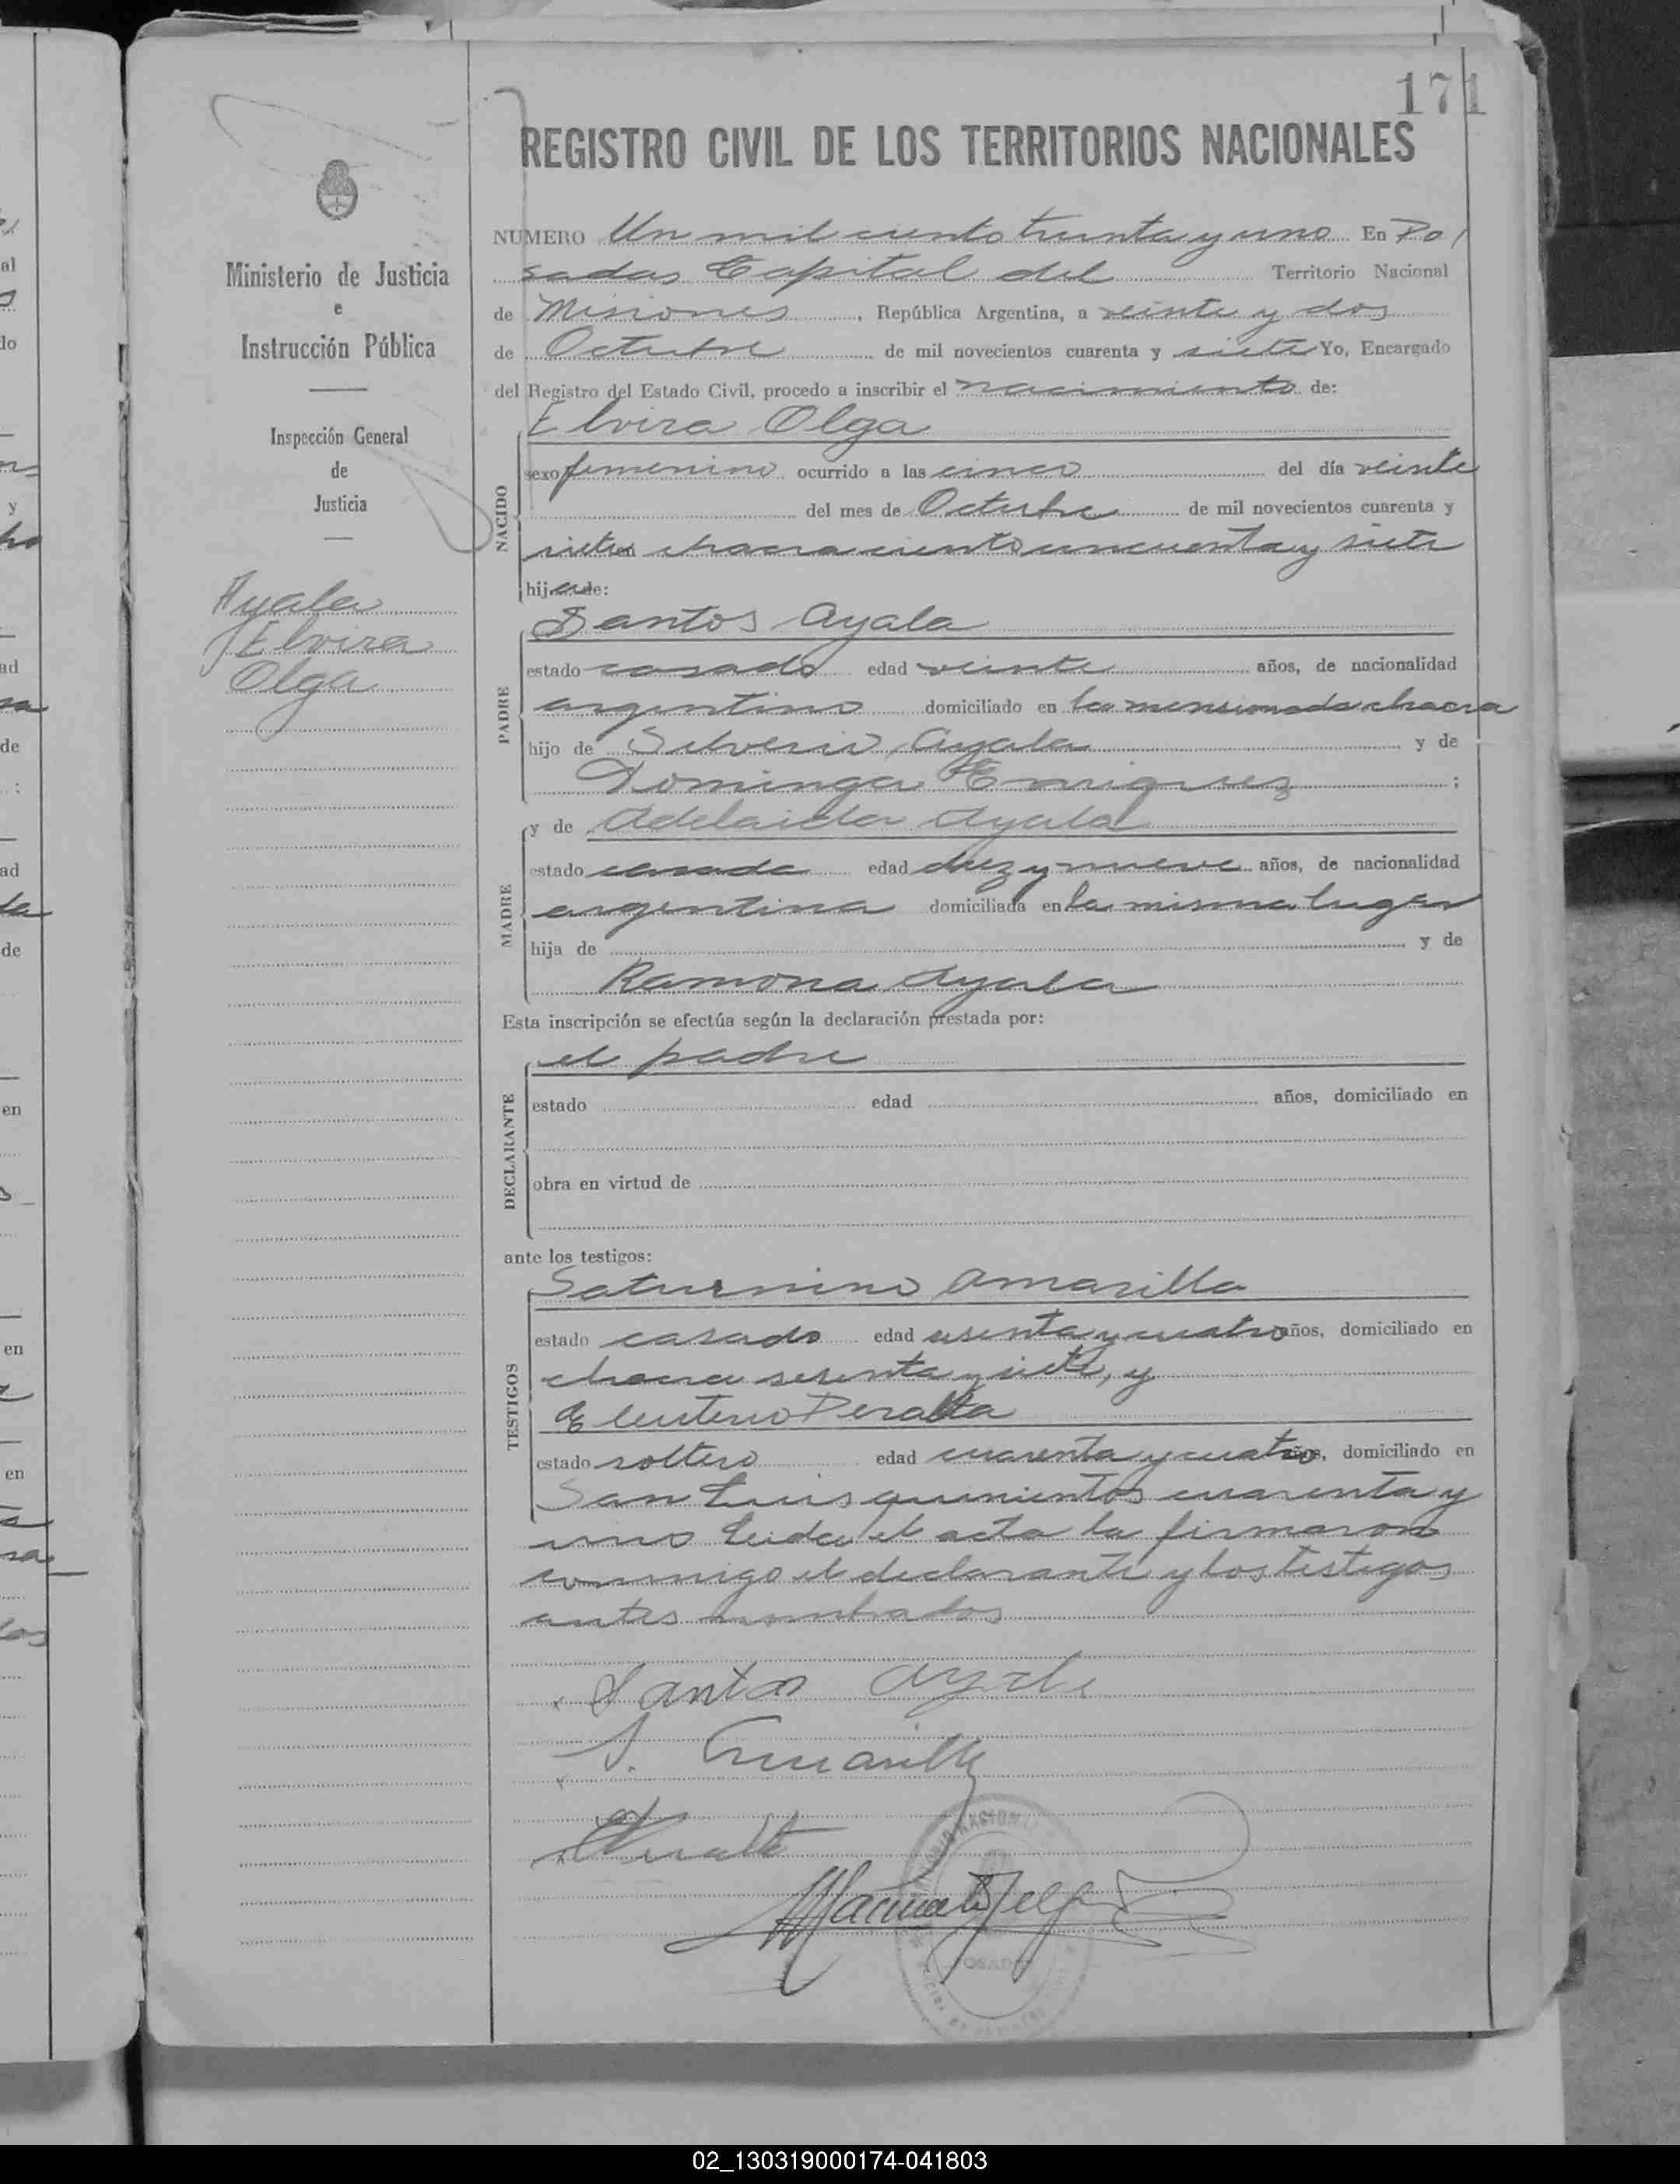 171
REGISTRO CIVIL DE LOS TERRITORIOS NACIONALES
Ministerio de Justicia
e
Instrucción Pública
Inspección General
de
Justicia
Ayala
Elvira
Olga
NUMERO Un mil ciento treinta y uno En Po
sadas Capital del Territorio Nacional
de Misiones, República Argentina, a veinte y dos
de Octubre de mil novecientos cuarenta y siete Yo, Encargado
del Registro del Estado Civil, procedo a inscribir el nacimiento de:
NACIDO
Elvira Olga
sexo femenino ocurrido a las cinco del día veinte
del mes de Octubre de mil novecientos cuarenta y
siete en chacra ciento cincuenta y siete
hija de:
PADRE
Santos Ayala
estado casado edad veinte años, de nacionalidad
argentino domiciliado en la mensionada chacra
hijo de Silverio Ayala y de
Dominga Enriquez;
MADRE
y de Adelaida Ayala
estado casada edad diez y nueve años, de nacionalidad
argentina domiciliada en la misma lugar
hija de y de
Ramona Ayala
Esta inscripción se efectúa según la declaración prestada por:
DECLARANTE
el padre
estado edad años, domiciliado en
obra en virtud de
ante los testigos:
TESTIGOS
Saturnino Amarilla
estado casado edad sesenta y cuatro años, domiciliado en
chacra sesenta y siete, y
Eleuterio Peralta
estado soltero edad cuarenta y cuatro años, domiciliado en
San Luis quinientos cuarenta y
uno Leida el acta la firmaron
conmigo el declarante y los testigos
antes nombrados
Santos Ayala
S. Amarilla
02_130319000174-041803